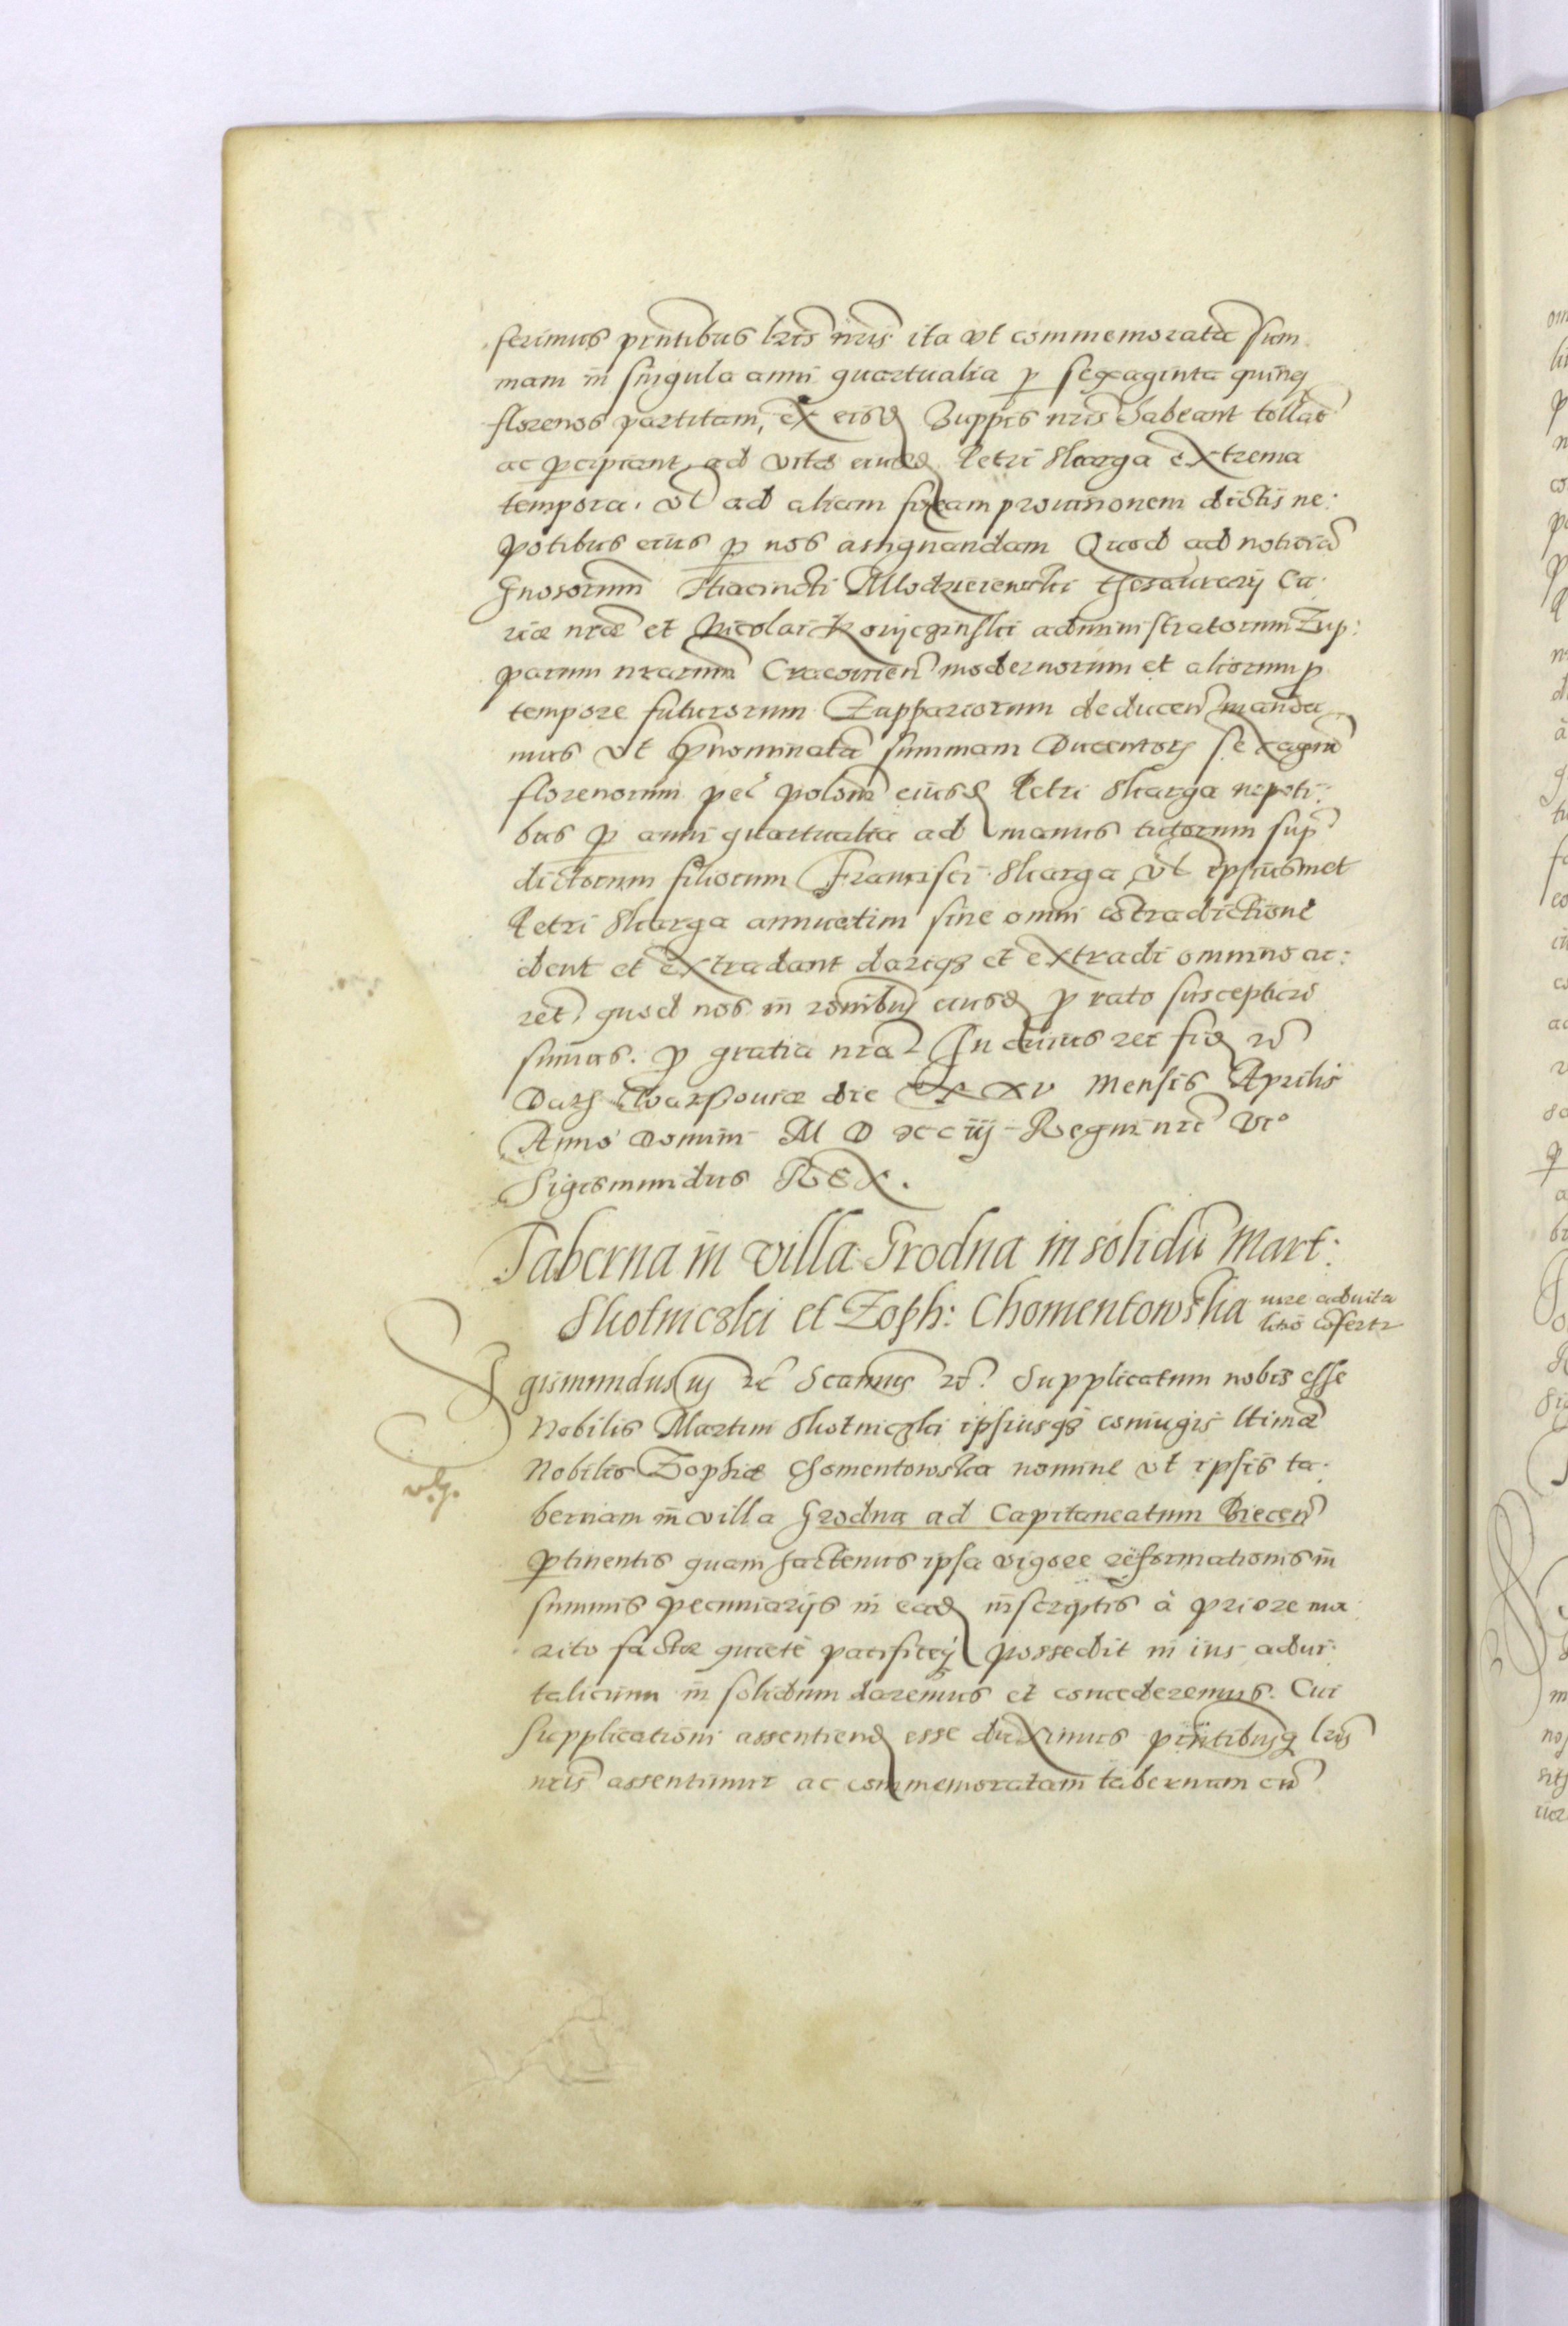 ferimus pñtibus lris nris ita vt commemoratã sum
mam in singula anni quartualia p sexaginta quinq
florenos partitam, ex eisd Zuppis nris habeant tollãt
ac pcipiant, ad vitæ eiusd Petri Skarga extrema
tempora, vl ad aliam similem prouisionem dictis ne:
potibus eius p nos assignandam Quod ad notitiã
Gnosorum Hiacincti Mlodzieiewski thesaurarij Cu:
riæ nræ et Nicolai Korijczinski administratorum Zup:
parum nrarum Cracouien modernorum et aliorum p
tempore futurorum Zuppariorum deducen manda
mus vt pnominatã summam Ducentorum sexagintã
florenorum pec polon eiusd Petri Skarga nepoti:
bus p anni quartualia ad manus tutorum sup
dictorum filiorum Francisci Skarga vl ipsiusmet
Petri Skarga annuatim sine omni cõtradictione
dent et extradant dariqz et extradi omnino cu:
ret, quod nos in rõnibus eiusd p rato suscepturi
sumus. p gratia nra. In cuius rei fid rc
Datz Warssouiæ die XXV Mensis Aprilis
Anno Domini M D XC iij Regni nri Vto
Sigismundus REX.
Taberna in villa Grodna in solidũ Mart:
Skotniczki et Zoph: Chomentowska iure aduita
litio cõfertr
Sigismundus iij rc Scamus rc. Supplicatum nobis esse
Nobilis Martini Skotniczki ipsiusqz coniugis ltimæ
Nobilis Zophiæ Chomentowska nomine vt ipsis ta:
bernam in villa Grodna ad Capitaneatum Biecen
ptinentis quam hactenus ipsa vigore reformationis in
summis pecuniarijs in ead inscriptis à priore ma
rito factæ quietè pacificeq possedit in ius adui
talicium in solidum daremus et concederemus. Cui
supplicationi assentiend esse duximus pñtibusq lris
nris assentimur ac commemoratam tabernam cũ